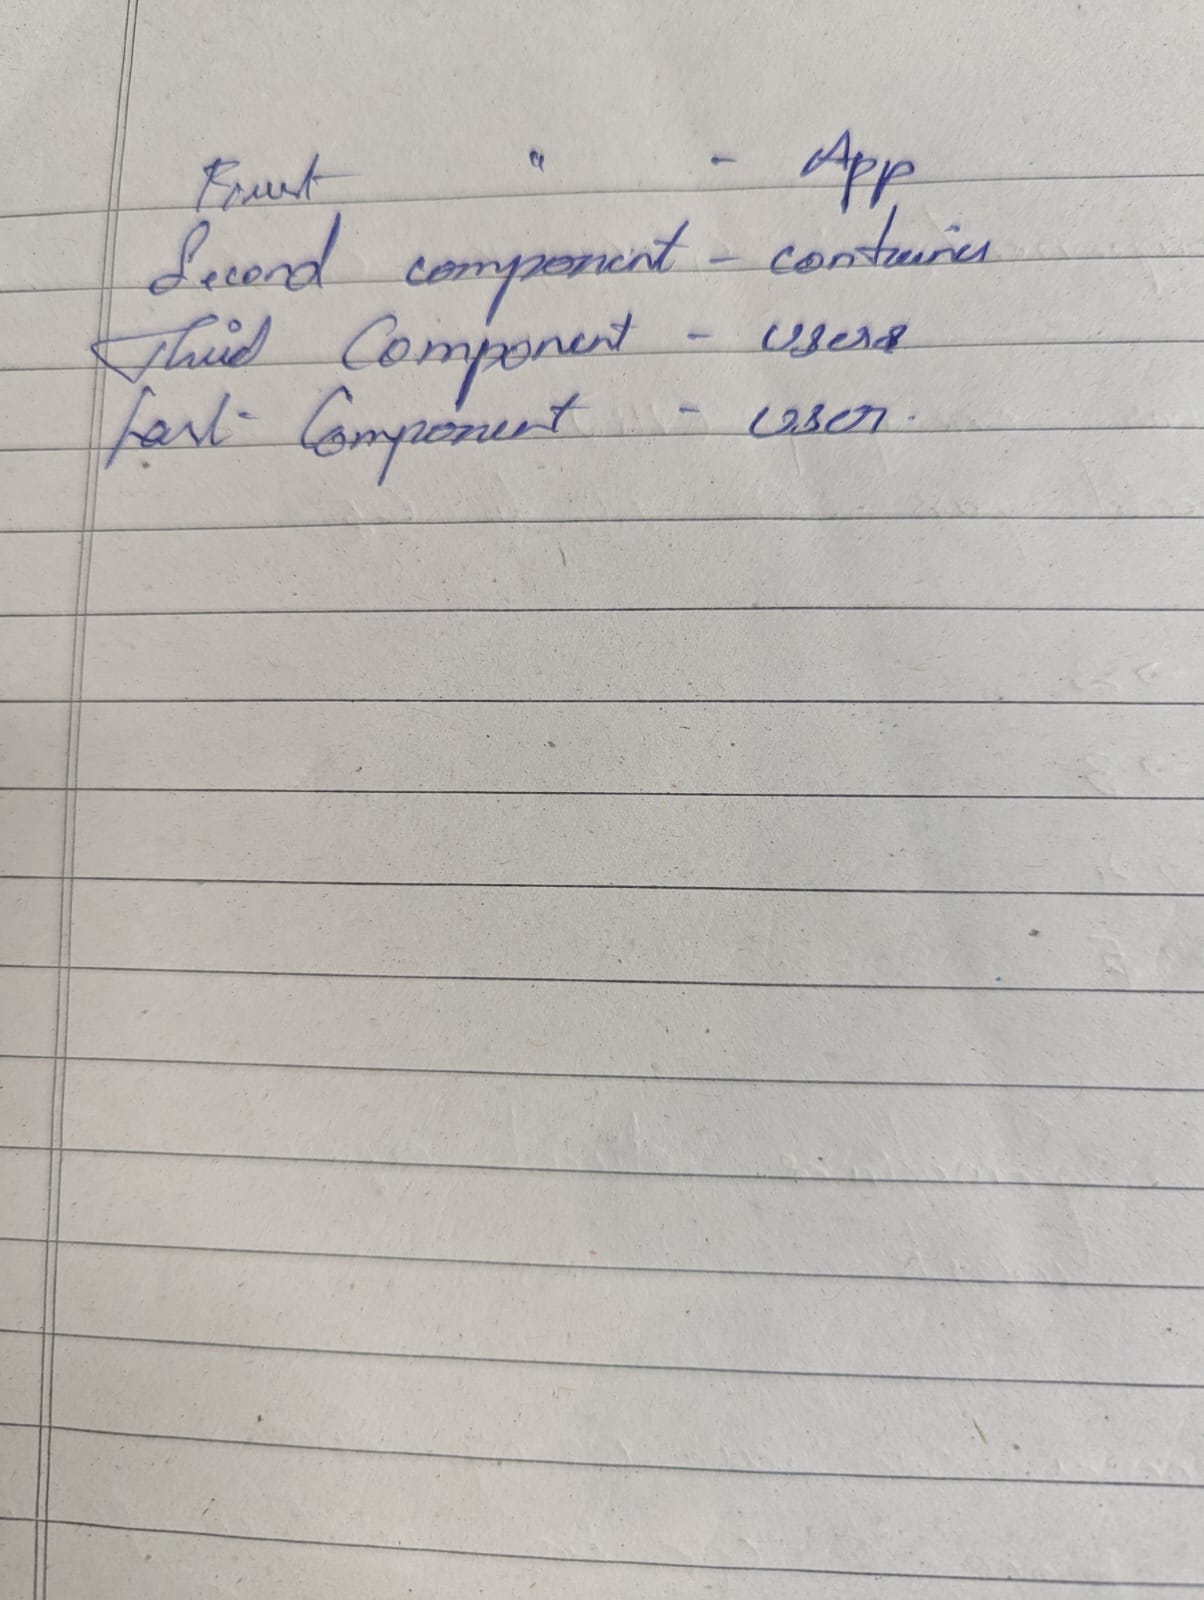 First " - App
Second component - container
Third Component - users
Last Component - user.